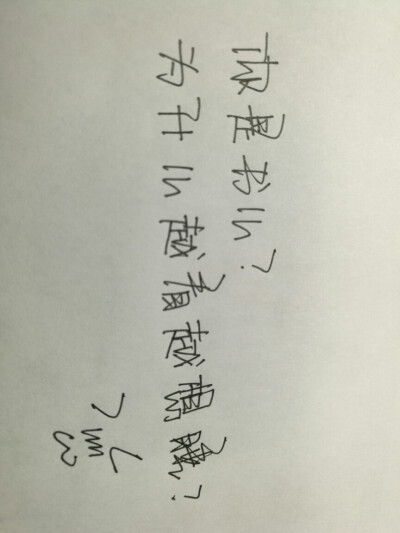 你是书么?
为什么越看越想睡?